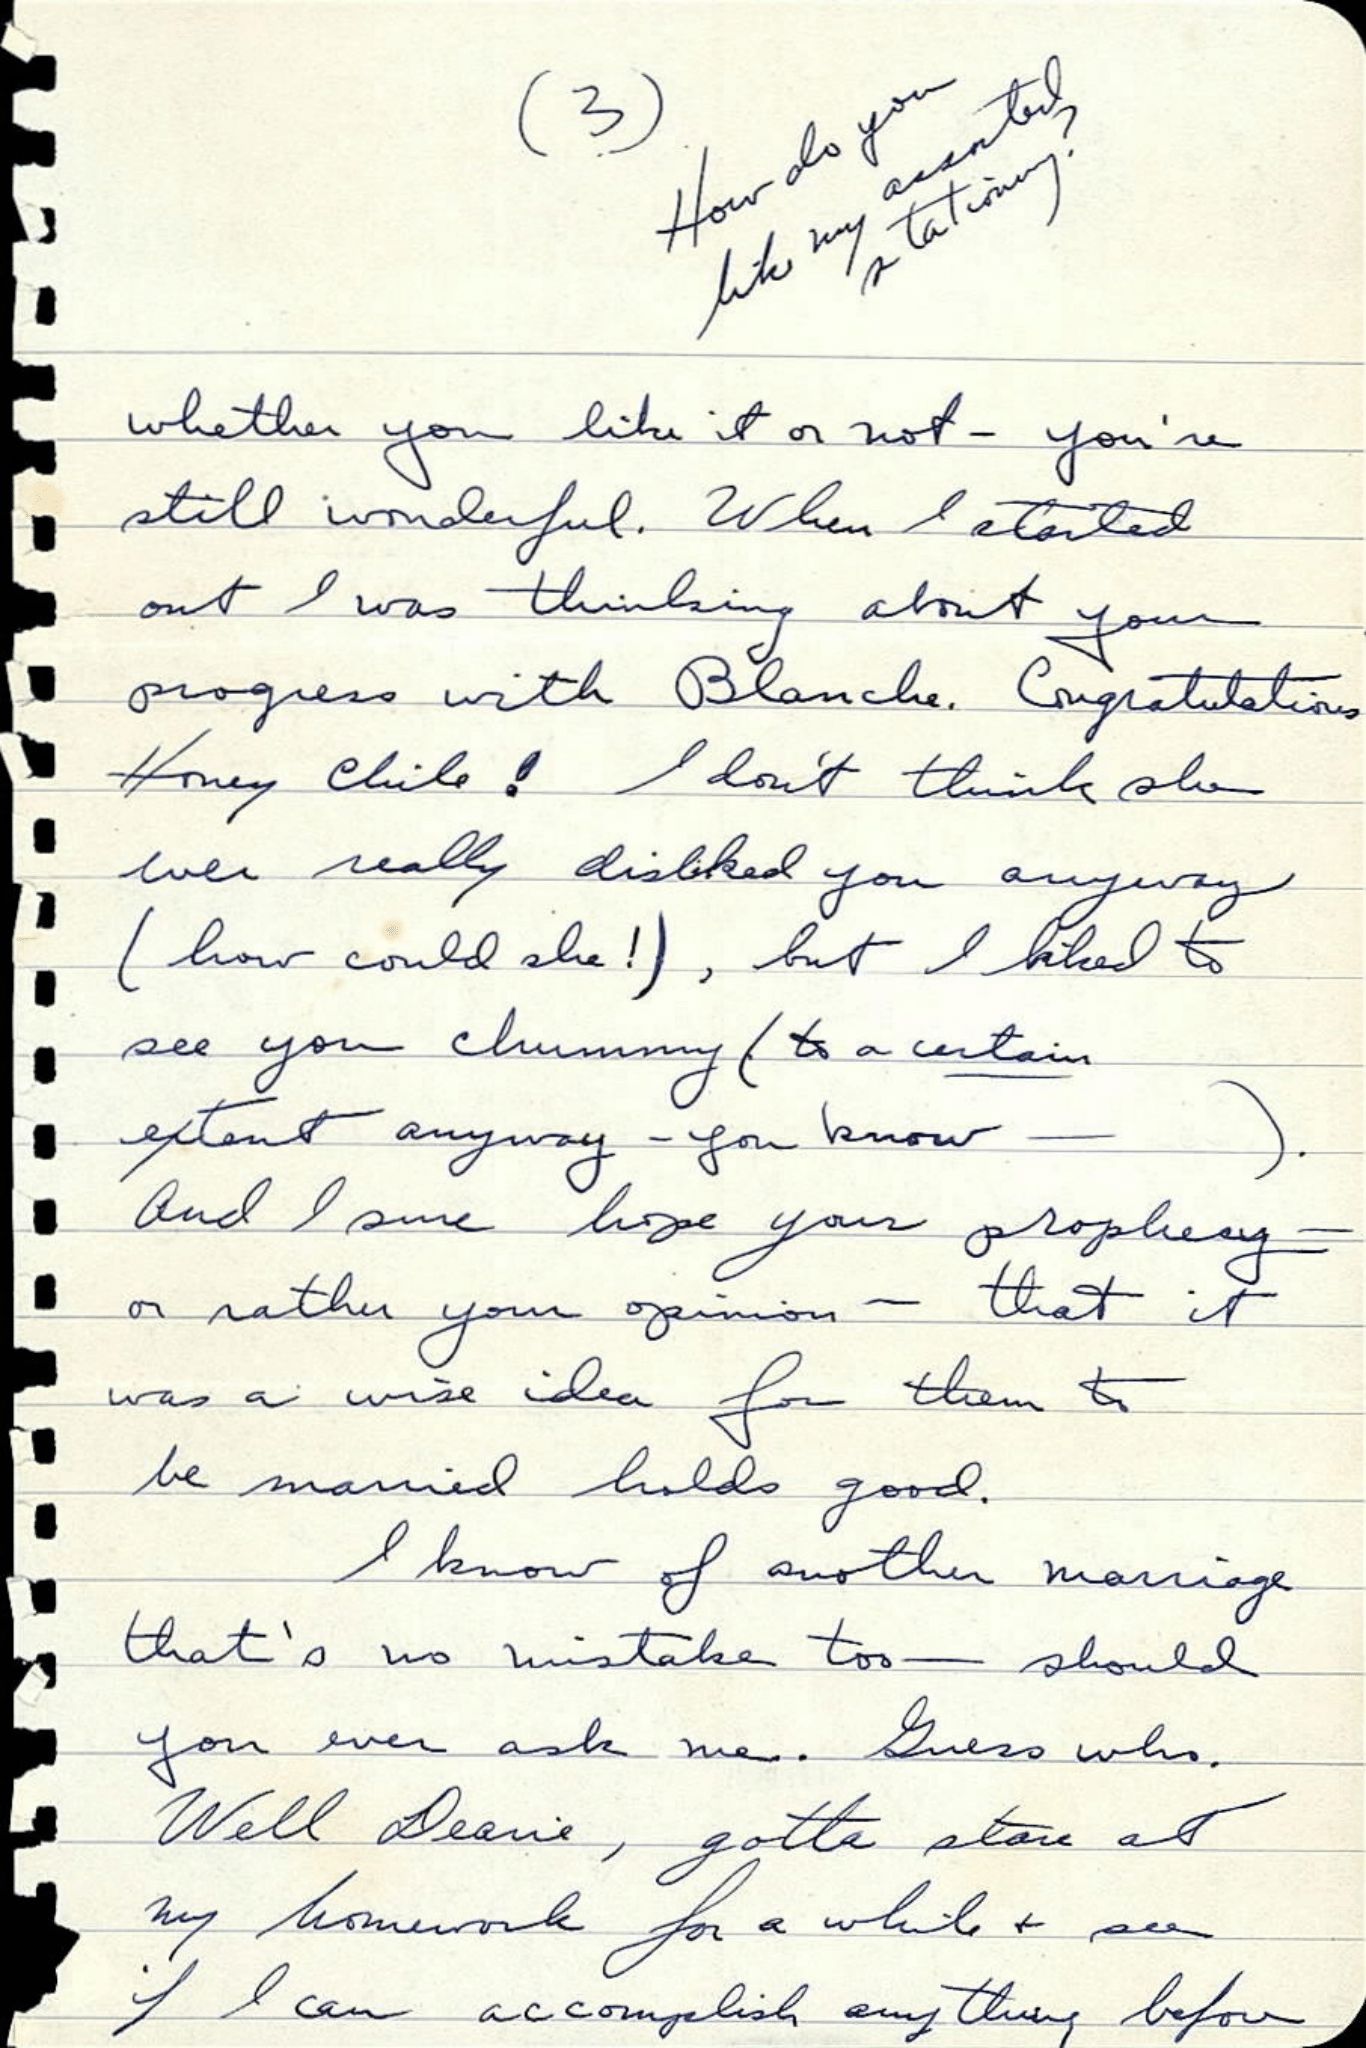 (3)
How do you
like my assorted
stationery?
whether you like it or not - you're
still wonderful. When I started
out I was thinking about your
progress with Blanche. Congratulations
Honey Chile! I don't think she
ever really disliked you anyway
(how could she!), but I liked to
see you chummy (to a certain
extent anyway - you know — ).
And I sure hope your prophecy -
or rather your opinion - that it
was a wise idea for them to
be married holds good.
I know of another marriage
that's no mistake too — should
you ever ask me. Guess who.
Well Dearie, gotta stare at
my homework for a while + see
if I can accomplish anything before